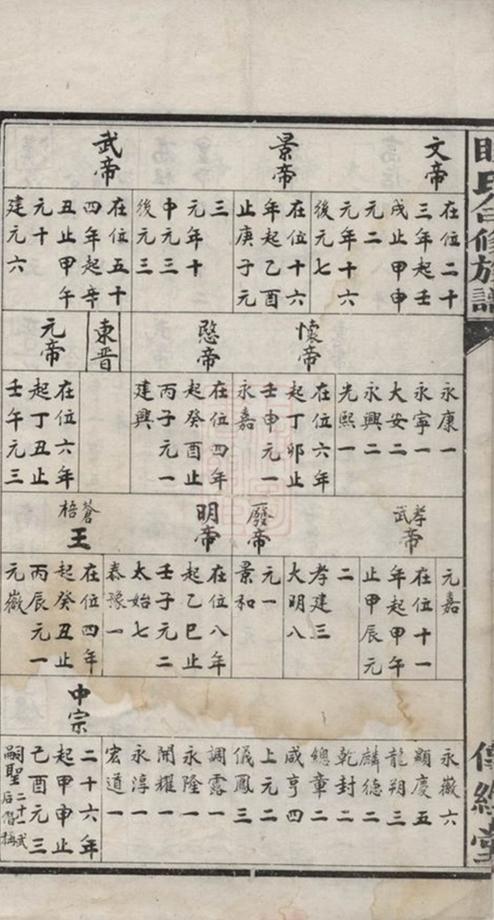 氏合修族譜
堂
文帝
在位二十
三年起壬
戌止甲申
元二
元年十六
後元七
景帝
在位十六
年起乙酉
止庚子元
三
元年十
中元三
後元三
武帝
在位五十
四年起辛
丑止甲午
元十
建元六
永康一
永寧一
大安二
永興二
光熙一
懷帝
在位六年
起丁卯止
壬申元一
永嘉
愍帝
在位四年
起癸酉止
丙子元一
建興
東晋
元帝
在位六年
起丁丑止
壬午元三
元嘉
孝武帝
在位十一
年起甲午
止甲辰元
二
孝建三
大明八
廢帝
元一
景和
明帝
在位八年
起乙巳止
壬子元二
太始七
泰豫一
蒼梧王
在位四年
起癸丑止
丙辰元一
元徽
永徽六
顯慶五
龍朔三
麟德二
乾封二
總章二
咸亨四
上元二
儀鳳三
調露一
永隆一
開耀一
永淳一
宏道一
中宗
二十六年
起甲申止
己酉元三
嗣聖二十一武后僭稱